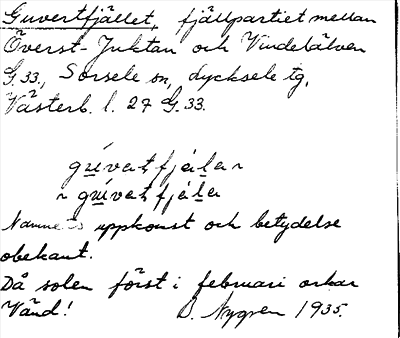 Guvertfjället, fjällpartiet mellan
Överst-Juktan och Vindelälven
G.33., Sorsele sn, Lycksele tg,
Västerb. l. 27 G. 33.
grívatfjäla
~ grívatfjäla
Namnets uppkomst och betydelse
obekant.
Då solen först i februari orkar
Vänd! D. Nygren 1935.